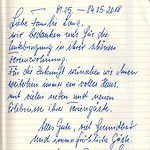 11.05. - 14.05.2018
Liebe Familie Lang,
wir bedanken uns für die
Unterbringung in ihrer schönen
Ferienwohnung.
Für die Zukunft wünschen wir Ihnen
weiterhin immer ein volles Haus,
mit vielen netten und neuen
Erlebnisse ihrer Feriengäste.
Alles Gute, viel Gesundheit
und immer fröhliche Gäste.